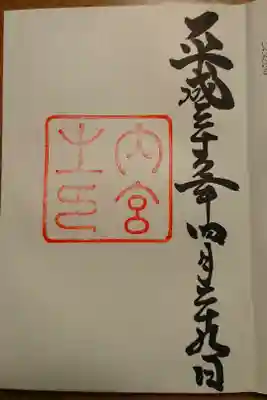 平成二十五年四月二十九日
内宮
之印